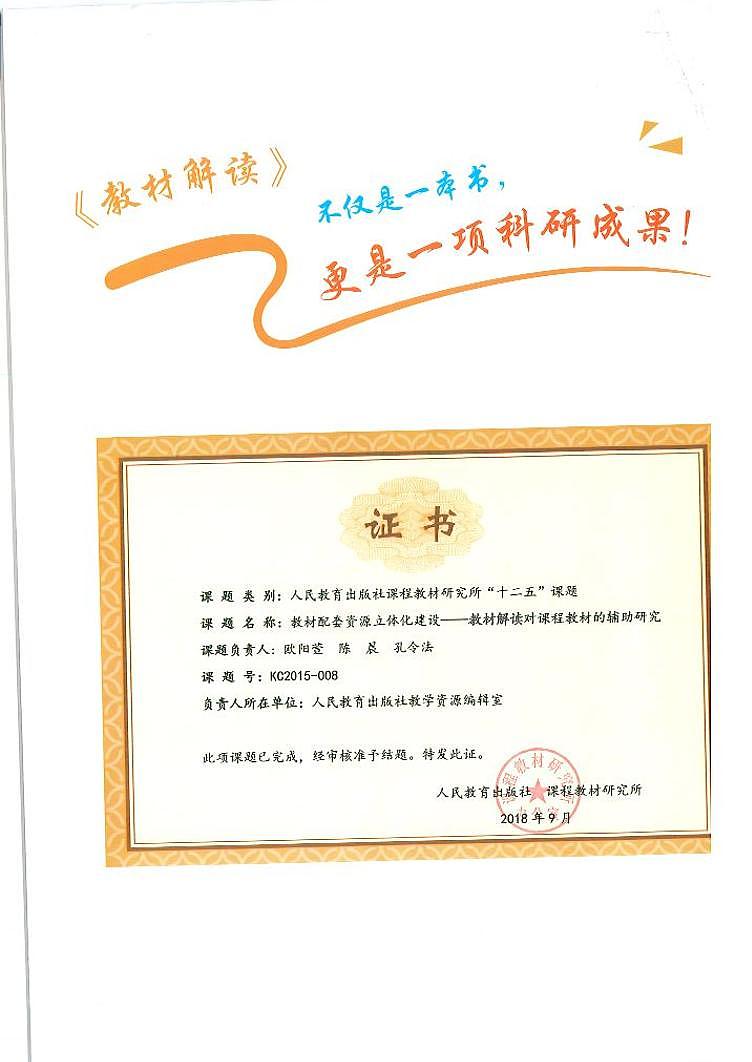 《教材解读》
不仅是一本书，
更是一项科研成果！
证书
课 题 类 别：人民教育出版社课程教材研究所“十二五”课题
课 题 名 称：教材配套资源立体化建设——教材解读对课程教材的辅助研究
课题负责人：欧阳莹 陈 晨 孔令法
课 题 号：KC2015-008
负责人所在单位：人民教育出版社教学资源编辑室
此项课题已完成，经审核准予结题。特发此证。
人民教育出版社 课程教材研究所
2018年9月